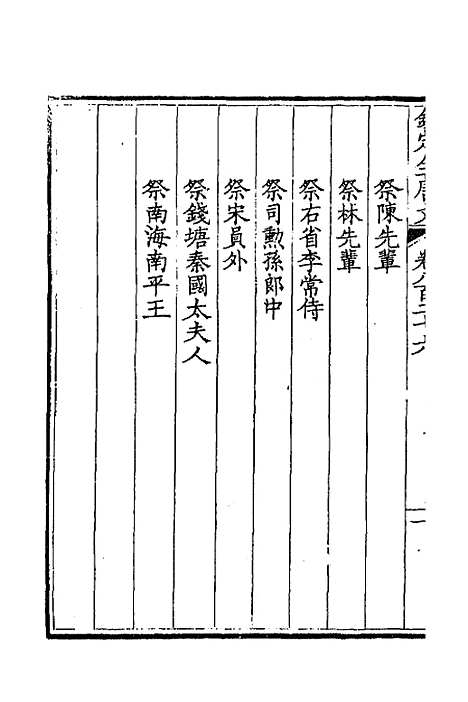 欽定全唐文 卷八百二十六 一
祭陳先輩
祭林先輩
祭右省李常侍
祭司勲孫郎中
祭宋員外
祭錢塘秦國太夫人
祭南海南平王